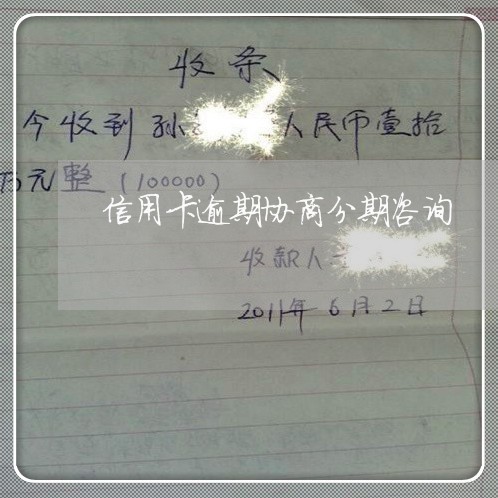 收条
今收到孙 人民币壹拾
万元整(100000)
信用卡逾期协商分期咨询
收款人
2011年6月2日